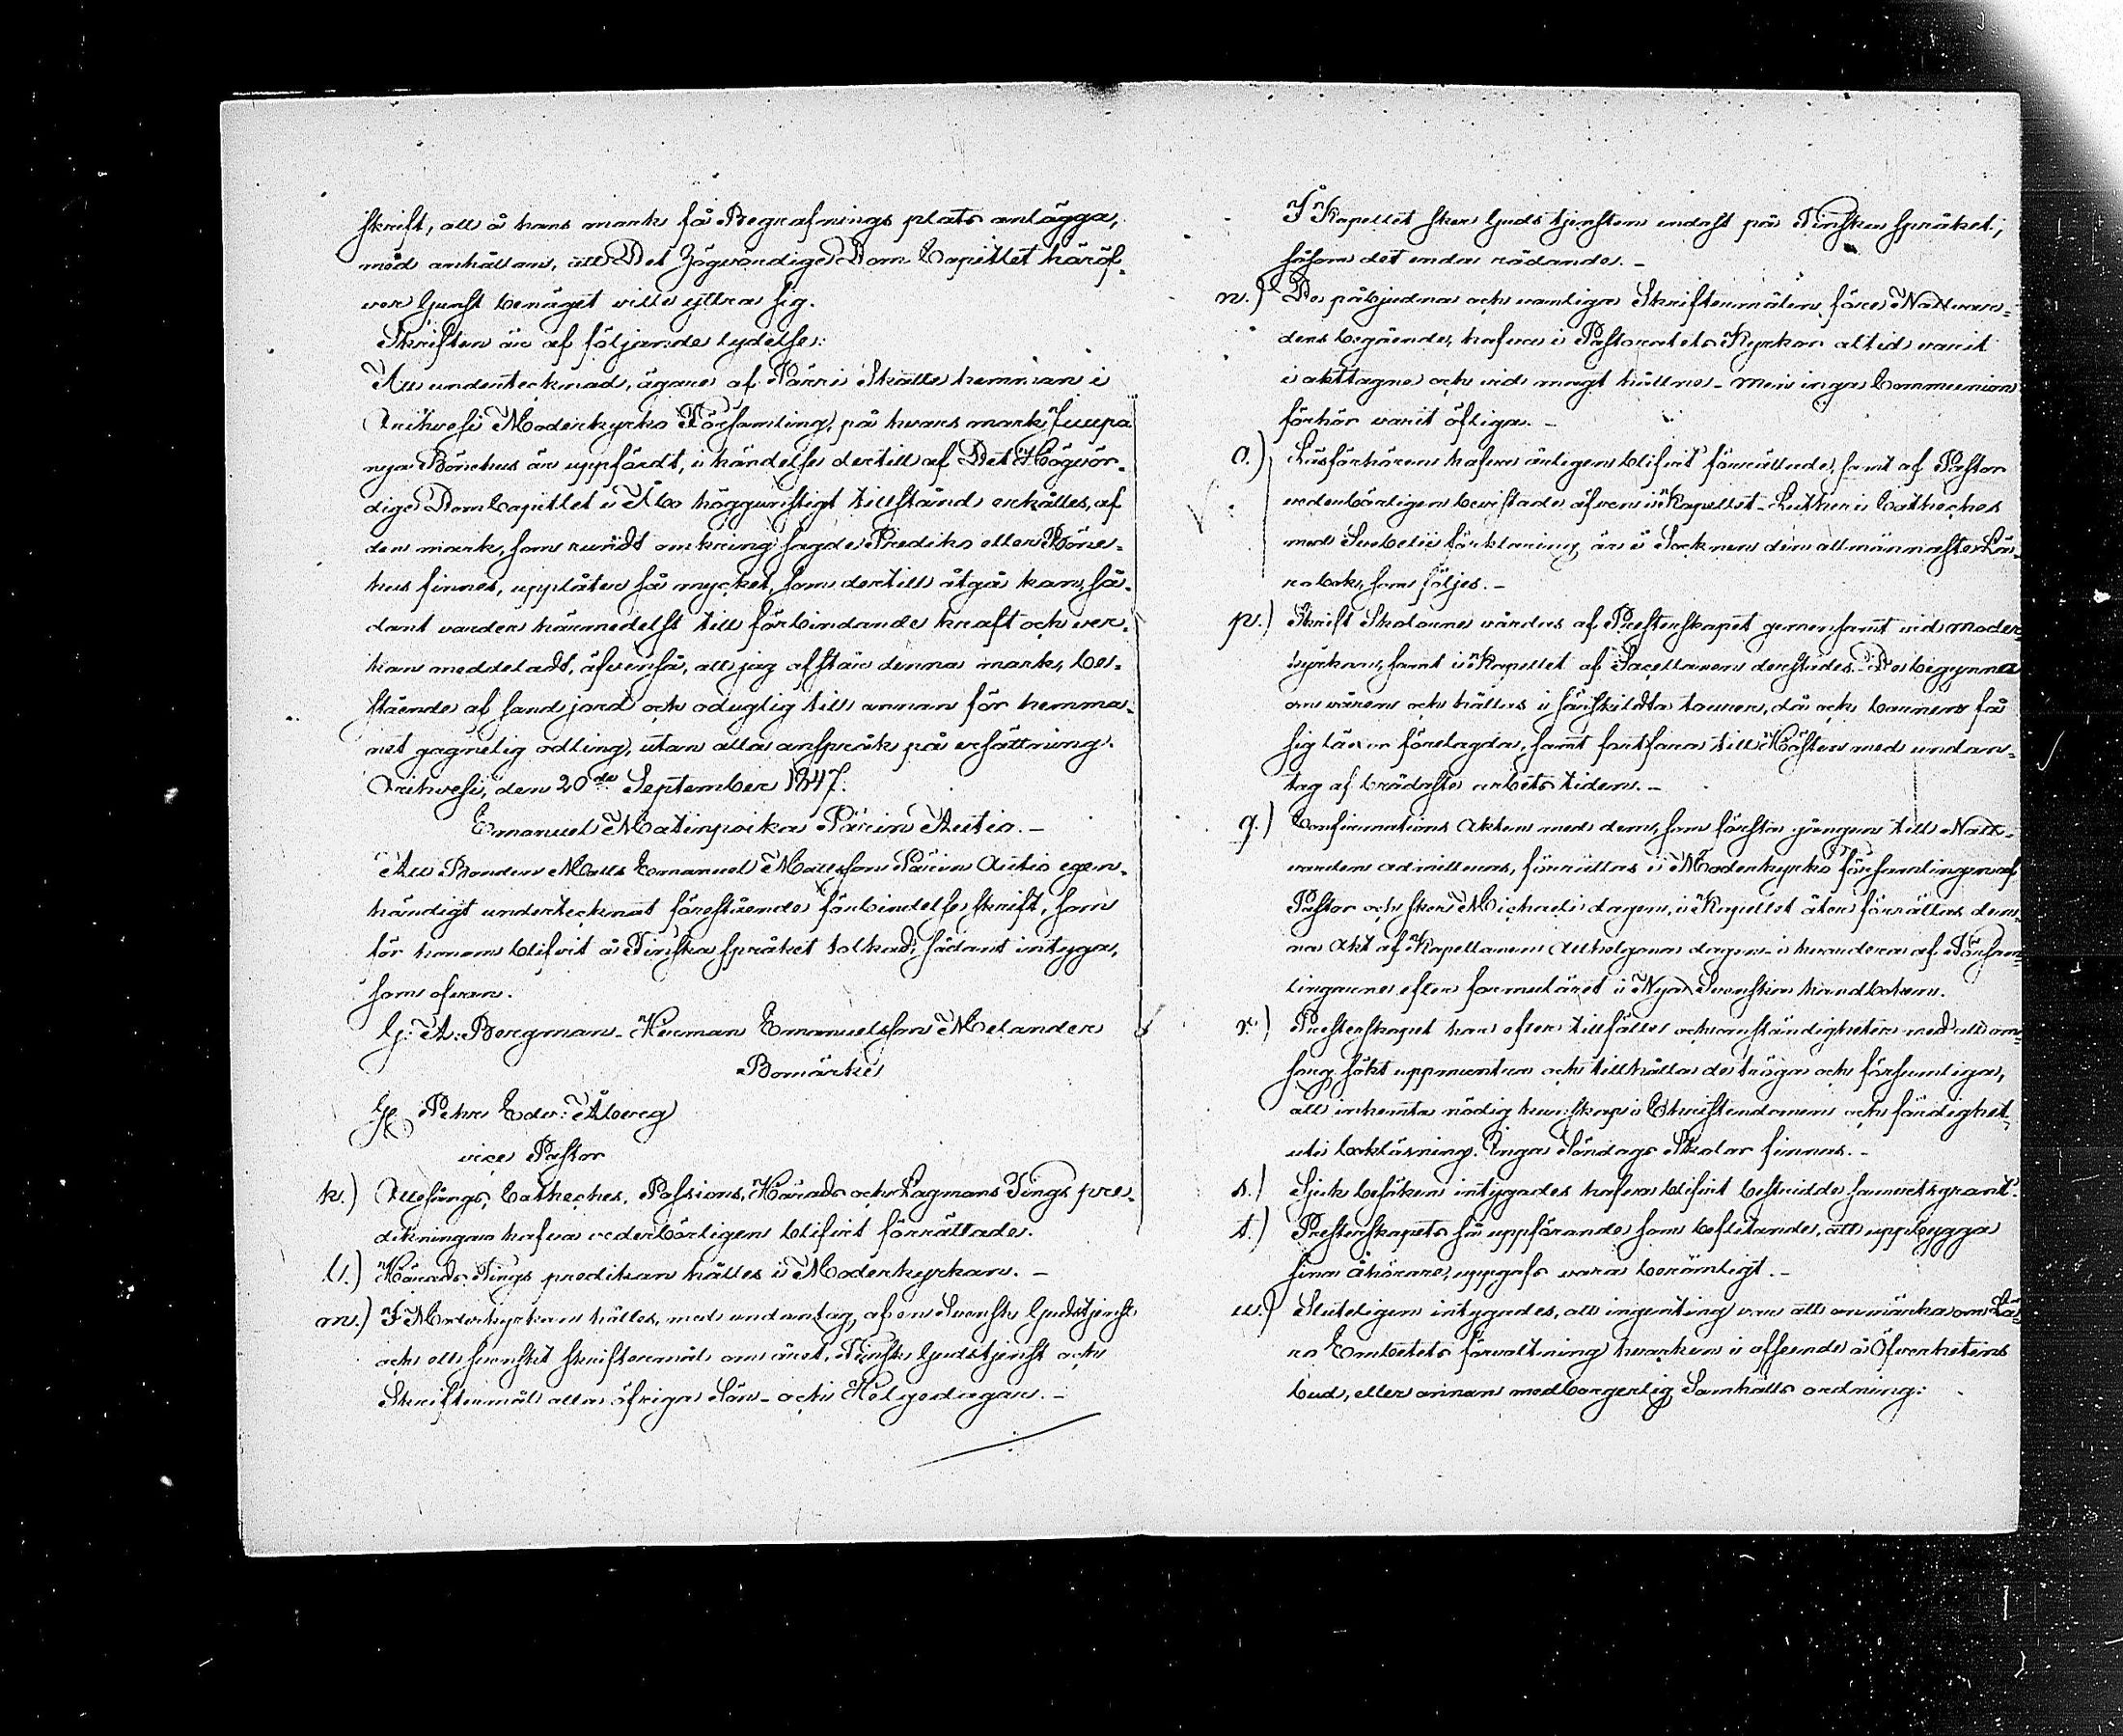 skrift, att å hans mark få Begrafnings plats anlägga,
med anhållan, att Det Högvördige Dom Capitlet häröf-
ver gunst benäget ville yttra sig.
Skriften är af följande lydelse:
Att undertecknad, ägare af Pärri Skatte hemman i
Orihvesi Moderkyrko Församling, på hvars mark Juupa
nya Bönehus är uppfördt, i händelse dertill af Det Högvör-
dige DomCapitlet i Åbo höggunstigt tillstånd erhålles, af
den mark, som rundt omkring sagde Prediko eller Böne-
hus finnes, upplåter så mycket, som dertill åtgå kan, så-
dant varder härmedelst till förbindande kraft och ver-
kan meddeladt, äfvenså, att jag afstår denna mark, be-
stående af sand jord och oduglig till annan för hemma-
net gagnelig odling, utan alla anspråk på ersättning.
Orihvesi, den 20de September 1847.
Emanuel Matinpoika Pärrin Autio. -
Att Bonden Matts Emanuel Mattsson Pärrin Autio egen-
händigt undertecknat förestående förbindelse skrift, som
för honom blifvit å Finska språket tolkad, sådant intyga,
som ofvan.
G: A: Bergman - Herman Emanuelsson Melander
Bomärke
Petr Edv: Åberg
vice Pastor
k.) Ottesångs, Catheches, Passions, Härads och Lagmans Tings pre-
dikningar hafva vederbörligen blifvit förrättade.
l.) Härads Tings predikan hålles i Moderkyrkan. -
m.) I Moderkyrkan hålles, med undantag, af en Svensk Gudstjenst
och ett svenskt skriftermål om året, Finsk Gudstjenst och
Skriftermål alla öfriga Sön- och Helgedagar. -
I Kapellet sker Gudstjensten endast på Finska språket,
såsom det enda rådande. -
n.) De påbjudna och vanliga Skriftermålen före Nattvar-
dens begående, hafva i Pastoratets Kyrkor altid varit
i akttagne och vid magt hållne - men inga Communion
förhör varit öfliga. -
o.) Läsförhören hafva årligen blifvit förrättade, samt af Pastor
vederbörligen bevistade äfven i Kapellet - Lutheri Catheches
med Svebelii förklaring är i Socknen den allmännaste Lä-
robok, som följes. -
p.) Skrift Skolorne vårdas af Presterskapet gemensamt vid moder
kyrkan, samt i Kapellet af Sacellanen derstädes. De begynna
om våren och hållas i särskildta tourer, då och barnen få
sig läxor förelagda, samt fortfara till Hösten med undan-
tag af brådaste arbets tiden. -
q.) Confirmations Akten med dem, som första gången till Natt-
varden admitteras, förrättas i Moderkyrko församlingen af
Pastor och sker Michaeli dagen, i Kapellet åter förrättas den-
na Akt af Kapellanen Allhelgona dagen - i hvardera af Försam-
lingarne efter formuläret i Nya Svenska handboken.
r.) Presterskapet har efter tillfälle och omständigheter med all om-
sorg sökt uppmuntra och tillhålla de tröga och försumliga,
att inhemta nödig kunskap i Christendomen och färdighet
uti bokläsning. Inga Söndags Skolor finnas. -
s.) Sjuk besöken intygades hafva blifvit bestridde samvetsgrant.
t.) Presterskapets så uppförande som beflitande, att uppbygga
sina åhörare, uppgafs vara berömligt. -
u.) Sluteligen intygades, att ingenting var att anmärka om Lä-
ro Embetets förvaltning hvarken i afseende å Öfverhetens
bud, eller annan medborgerlig Samhälls ordning: